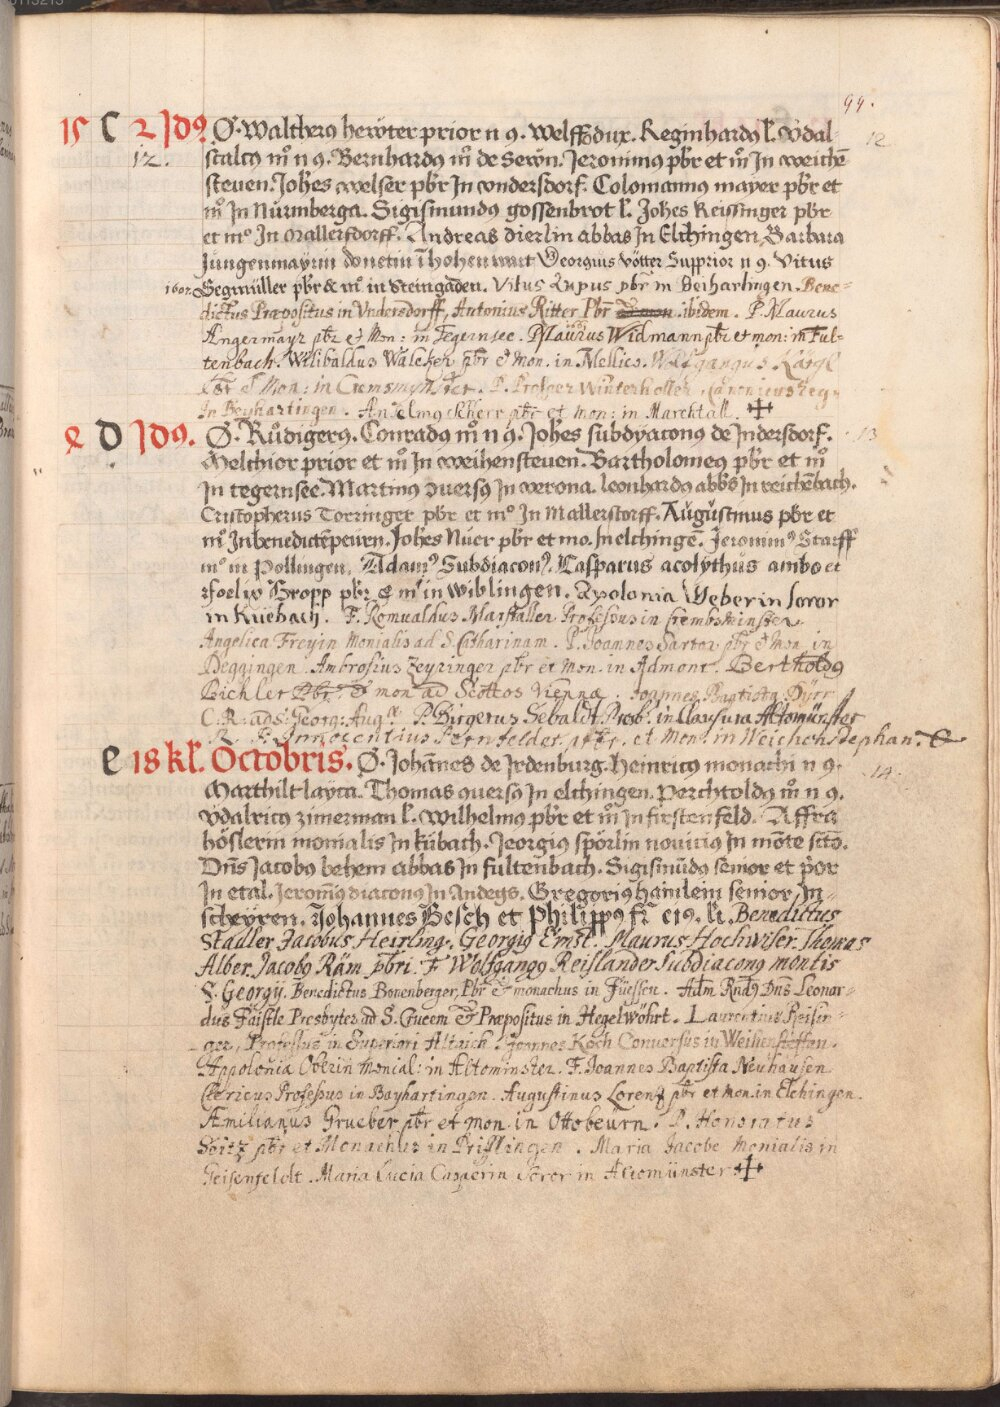 99.
15 C 2 Jdꝰ. Ø. Waltherꝰ hewter prior n 9. Welff dux. Reginhardꝰ l. Vdal 12
12. scalcꝰ mº n 9. Bernhardꝰ mº de Sewn. Jeronimꝰ pbr et mº Jn weichē
steuen. Johēs welser pbr Jn vndersdorf. Colomannus mayer pbr et
mº Jn Nůrmberga. Sigismundꝰ gossenbrot l. Johes Reissinger pbr
et mº Jn Mallersdorff. Andreas dierlin abbas Jn Elchingen, Barbara
Jungenmayrin donetin i hohenwart Georgius vötter Supprior n 9. Vitus
1602. Segmüller pbr & mº in Steingaden. Vitus Lupus pbr in Beiharlingen. Bene-
dictus Præpositus in Vndersdorff, Antonius Ritter Pbr ibidem. P. Maurus
Angermayr pbr et Mon: in Tegernsee. P. Maurus Widmann pbr et mon: in Ful-
tenbach. Wilibaldus Walcker pbr et Mon. in Mellico. Wolfgangus Kärgl
et Mon: in Cremsmynster. P. Prosper Winterholler Canonicus Reg.
In Beyhartingen. Anselmꝰ Kherr pbr et mon: in Marchtall. ✠
e D Jdꝰ. Ø. Růdigerꝰ. Conradꝰ mº n 9. Johēs subdyaconꝰ de Jndersdorf. 13
Melchior prior et mº Jn weihensteuen. Bartholomeꝰ pbr et mº
Jn tegernsee. Martinꝰ 2uersꝰ Jn verona. leonhardꝰ abbs Jn reichēbach.
Cristopherus Torringer pbr et mº Jn Mallerstorff. Augustinus pbr et
mº Jn benedictēpeurn. Johēs Nuer pbr et mo. Jn elchingē. Jeronimꝰ Starff
mº in Pollingen. Adamꝰ Subdiaconꝰ. Casparus acolythus ambo et
Foelix Gropp pbr & mº in wiblingen. Apolonia Weberin soror
in Küebach. F. Romualdus Marstaller Professus in krembsminster
Angelica Freyin Monialis ad S. Catharinam. P. Joannes Sartor pbr et Mon. in
Deggingen. Ambrosius Zeyringer pbr et Mon. in Admont. Bertholdꝰ
Pichler Pbr & mon ad Scottos Viennæ. Joannes Baptista Dürr
C. R. ad S. Georg: Aug. P. Birgerus Sebaldt Prob. in Clausura Altomünster
R. F. Innocentius Fernfelder pbr. et Mon. in Weichenstephan. &
e 18 kl. Octobris. Ø. Johānes de Jrdenburg. Heinricꝰ monachi n 9. 14.
Marthilt layca. Thomas 2uersꝰ Jn elchingen. Perchtoldꝰ mº n 9.
Vdalricꝰ zimerman l. Wilhelmꝰ pbr et mº Jn fürstenfeld. Affra
höslerin monialis Jn kübach. Jeorgiꝰ spörlin nouiciꝰ Jn mōte sctō.
Dn̄s Jacobꝰ behem abbas Jn fultenbach. Sigismūdꝰ senior et pior
Jn etal. Jeronīꝰ diaconꝰ Jn Andegs. Gregoriꝰ hainlein senior Jn
scheyren. Johannes Besch et Philippꝰ fr̄ eiꝰ. li. Benedictus
Stadler Jacobus Heirling. Georgiꝰ Ernst. Maurus Hochwiser. Thomas
Alber. Jacobꝰ Räm pbri. F Wolfgangꝰ Reislander Subdiaconꝰ montis
S. Georgÿ. Benedictus Bonenberger, Pbr & monachus in Füessen. Adm Rnd̄ꝰ Dn̄s Leonar-
dus Faistle Presbyter ad S. Crucem & Præpositus in Hegelwöhrt. Laurentius Reisin-
ger, Professus in Superiori Altaich. Joannes Koch Conversus in Weihensteffen.
Appolonia Oberin Monial: in Altominster. F. Joannes Baptista Neuhausen
Clericus Professus in Bayhartingen. Augustinus Lorenz pbr et mon. in Elchingen.
Æmilianus Grueber pbr et mon. in Ottobeurn. P. Honoratus
Seitz pbr et Monachus in Priflingen. Maria Jacobe Monialis in
Geisenfeldt. Maria Lucia Casperin Soror in Altomünster ✠